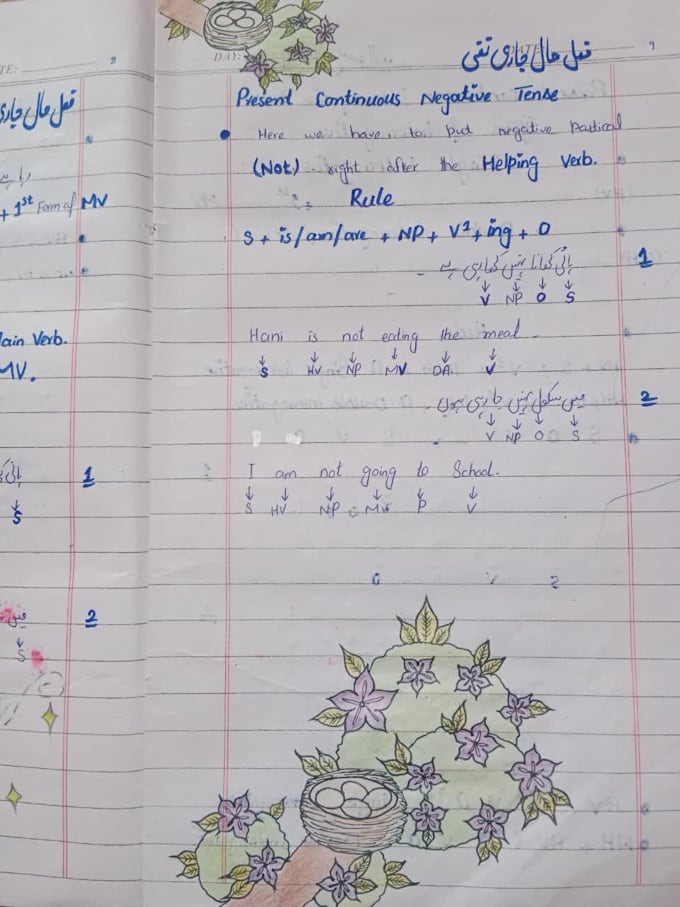 TE: 2
فعل حال جاری
+ 1st Form of MV
ain Verb.
MV.
1
S
2
S
DAY: DATE: 9
فعل حال جاری نفی
Present Continuous Negative Tense
Here we have to put negative partical
(Not) right after the Helping Verb.
Rule
S + is/am/are + NP + V¹ + ing + O
ہانی کھانا نہیں کھا رہی ہے۔ 1
V NP O S
Hani is not eating the meal.
S HV NP MV DA V
میں سکول نہیں جا رہی ہوں۔ 2
V NP O S
I am not going to School.
S HV NP MV P V